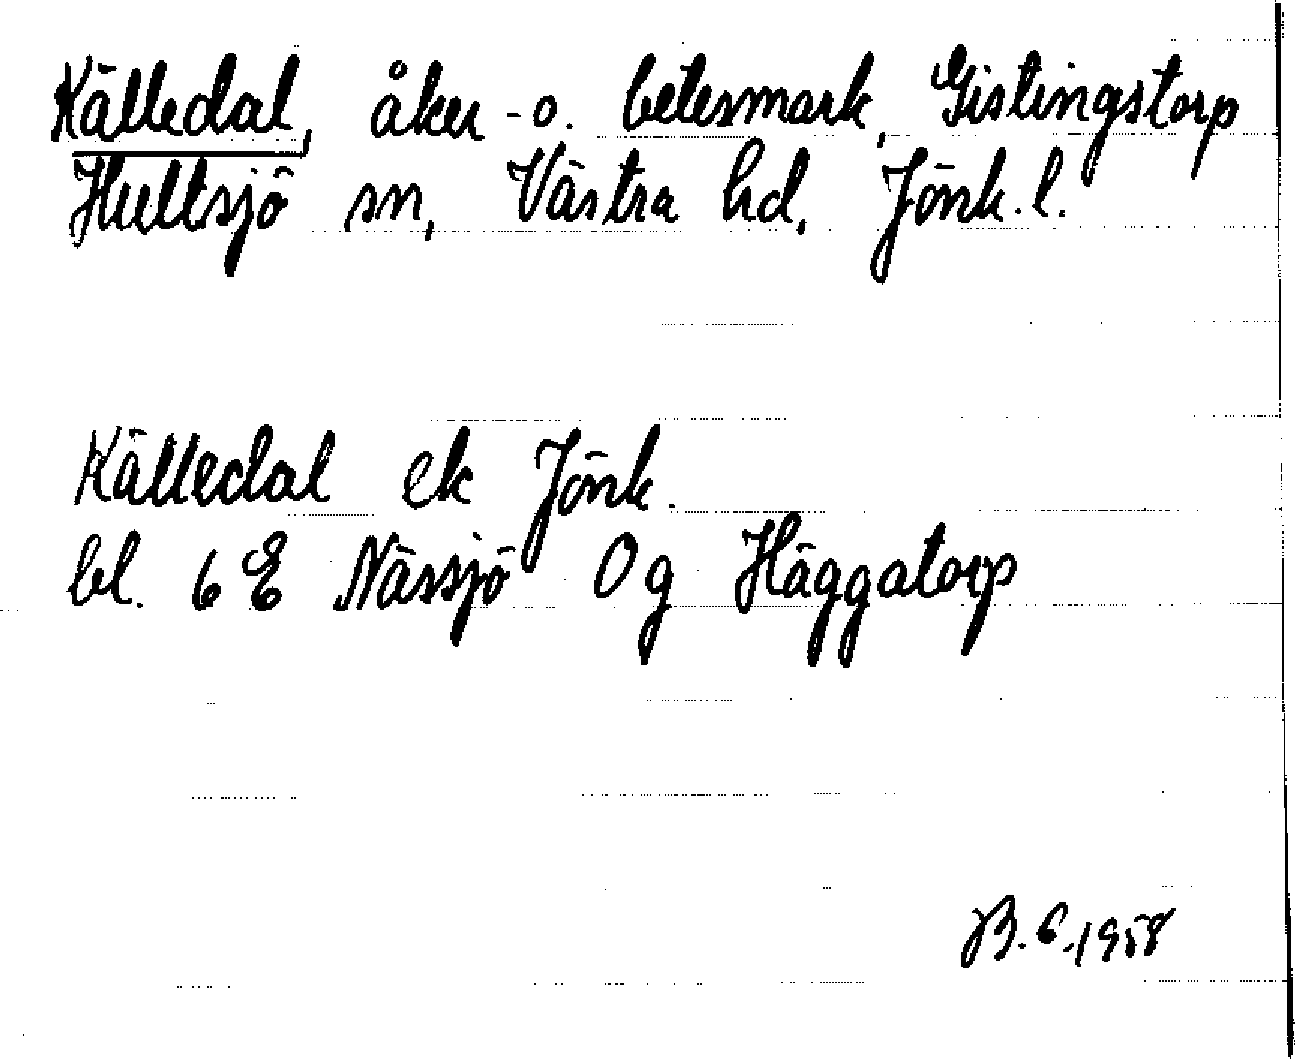 Källedal, åker- o. betesmark, Gistingstorp
Hultsjö sn, Västra hd, Jönk. l.
Källedal ek Jönk.
bl. 6 E Nässjö 0 g Häggatorp
B. E. 1958